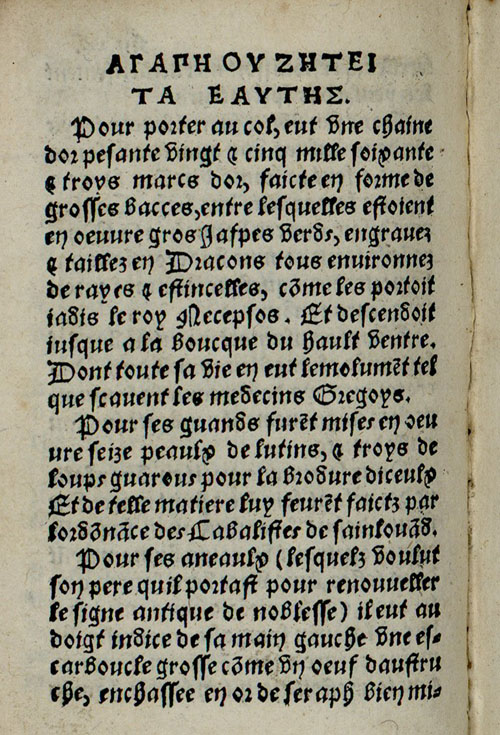 ΑΓΑΠΗ ΟΥ ΖΗΤΕΙ
ΤΑ ΕΑΥΤΗΣ.
Pour porter au col, eut vne chaine
dor pesante vingt & cinq mille soixante
& troys marcs dor, faicte en forme de
grosses bacces, entre lesquelles estoient
en oeuure gros Jaspes verds, engrauez
& taillez en Dracons tous enuironnez
de rayes & estincelles, cõme les portoit
iadis le roy Necepsos. Et descendoit
iusque a la boucque du hault ventre.
Dont toute sa vie en eut lemolumẽt tel
que scauent les medecins Gregoys.
Pour ses guands furẽt mises en oeu
ure seize peaulx de lutins, & troys de
loups guarous pour la brodure diceulx
Et de telle matiere luy feurẽt faictz par
lordõnãce des Cabalistes de sainlouãd.
Pour ses aneaulx (lesquelz voulut
son pere quil portast pour renouueller
le signe antique de noblesse) il eut au
doigt indice de sa main gauche vne es-
carboucle grosse cõme vn oeuf daustru
che, enchassee en or de seraph bien mi-